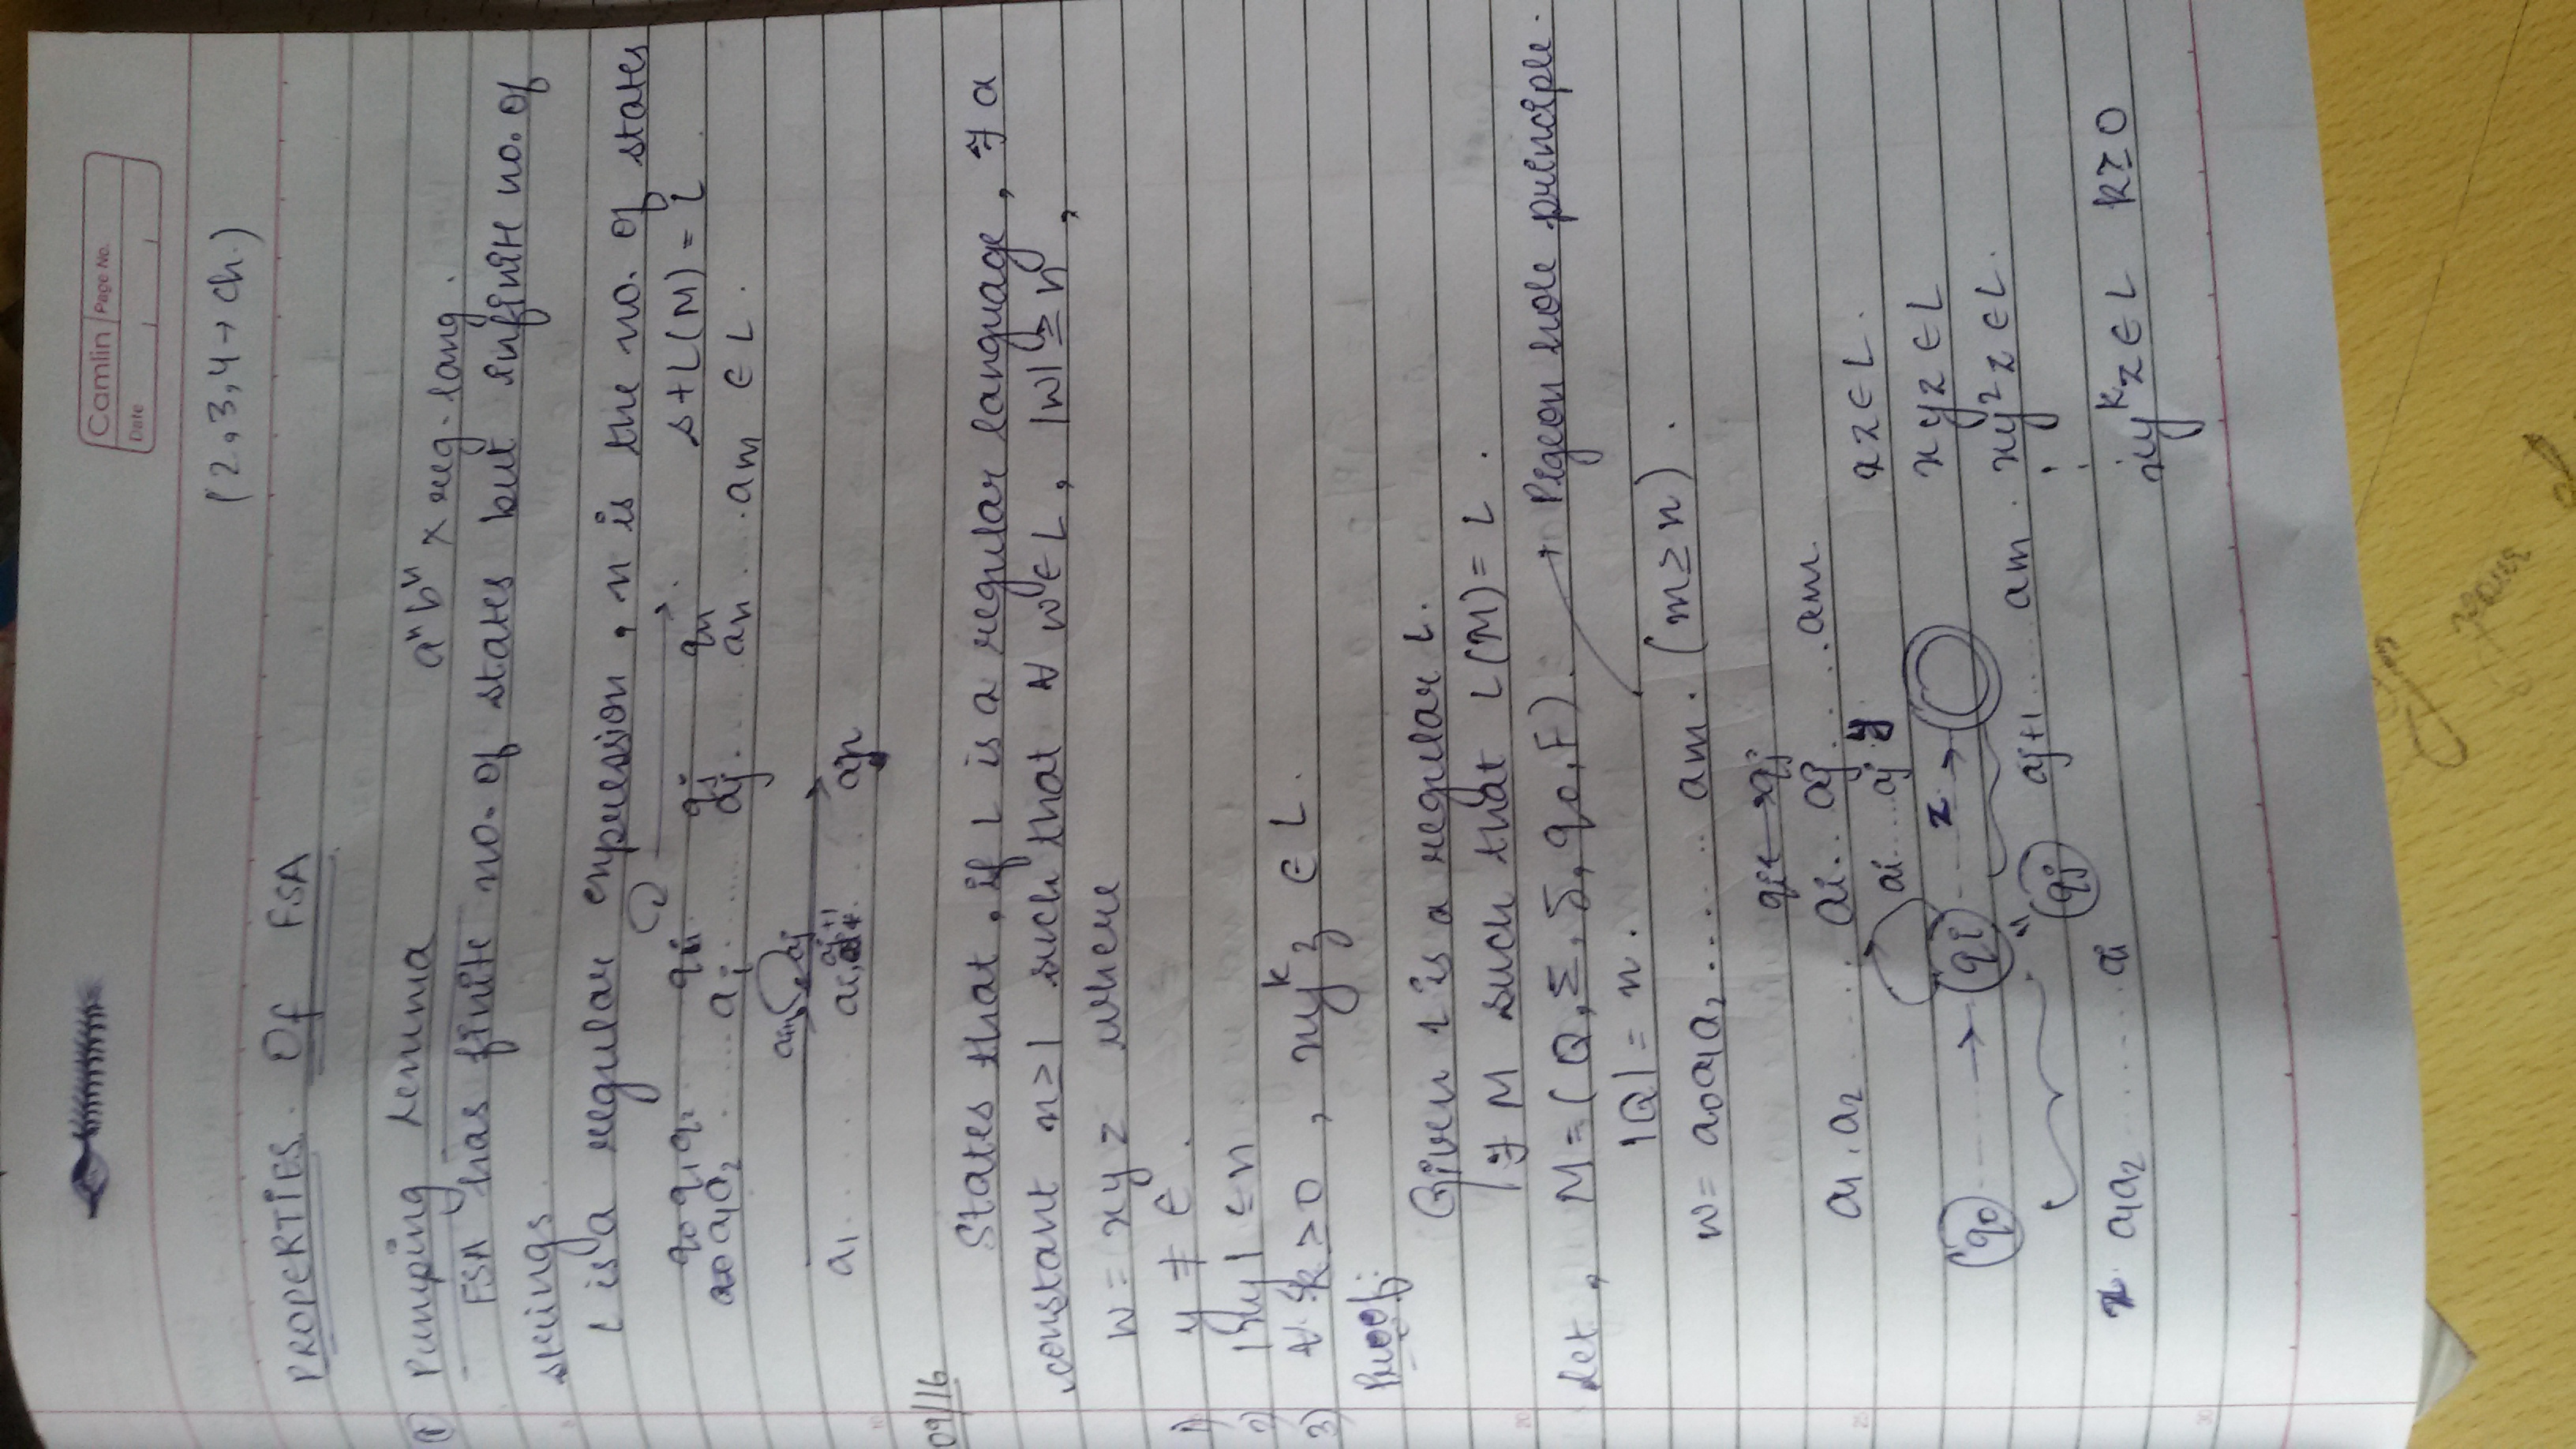 Camlin Page No.
Date
(2,3,4→ Ch.)
PROPERTIES Of FSA
① Pumping Lemma aⁿbⁿ × reg. lang.
FSA has finite no. of states but infinite no. of
strings.
L is a regular expression, n is the no. of states
q0 q1 q2 qi qj qn s+L(M) = L
a0 a1 a2 ...... ai ...... aj ... an ... am ∈ L.
aj
a1 ...... ai, aj+1 ...
09/16
States that, if L is a regular language, ∃ a
constant n≥1 such that ∀ w∈L, |w| ≥ n,
w = xyz where
1) y ≠ ∈.
2) |xy| ≤ n
3) ∀ k ≥ 0, xyᵏz ∈ L.
Proof:
Given L is a regular L.
∃ M such that L(M) = L.
Let, M = (Q, Σ, δ, q0, F). → Pigeon hole principle.
|Q| = n.
w = a0a1a2 ....... am. (m ≥ n).
qi ↔ qj
a1, a2 ..... ai.. aj ..... am.
ai.....aj y xz ∈ L.
q0 → qi z → xyz ∈ L
qj aj+1 ..... am. xy²z ∈ L.
x a1a2 ........ ai
xyᵏz ∈ L k≥0
20
25
30